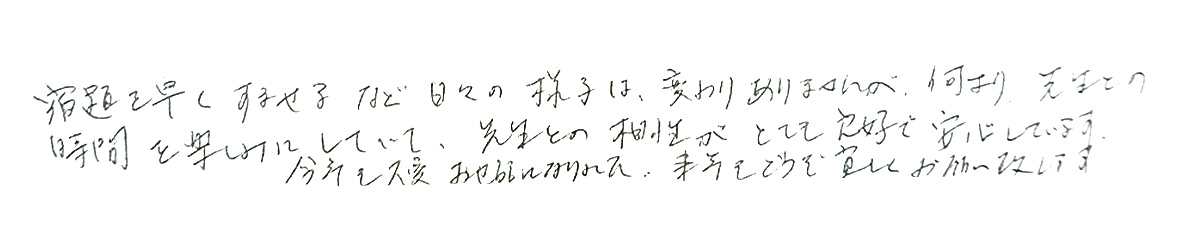 宿題を早くすませるなど日々の様子は、変わりありませんが、何より、先生との
時間を楽しみにしていて、先生との相性がとても良好で安心しています。
今年も大変お世話になりました。来年もどうぞ宜しくお願い致します